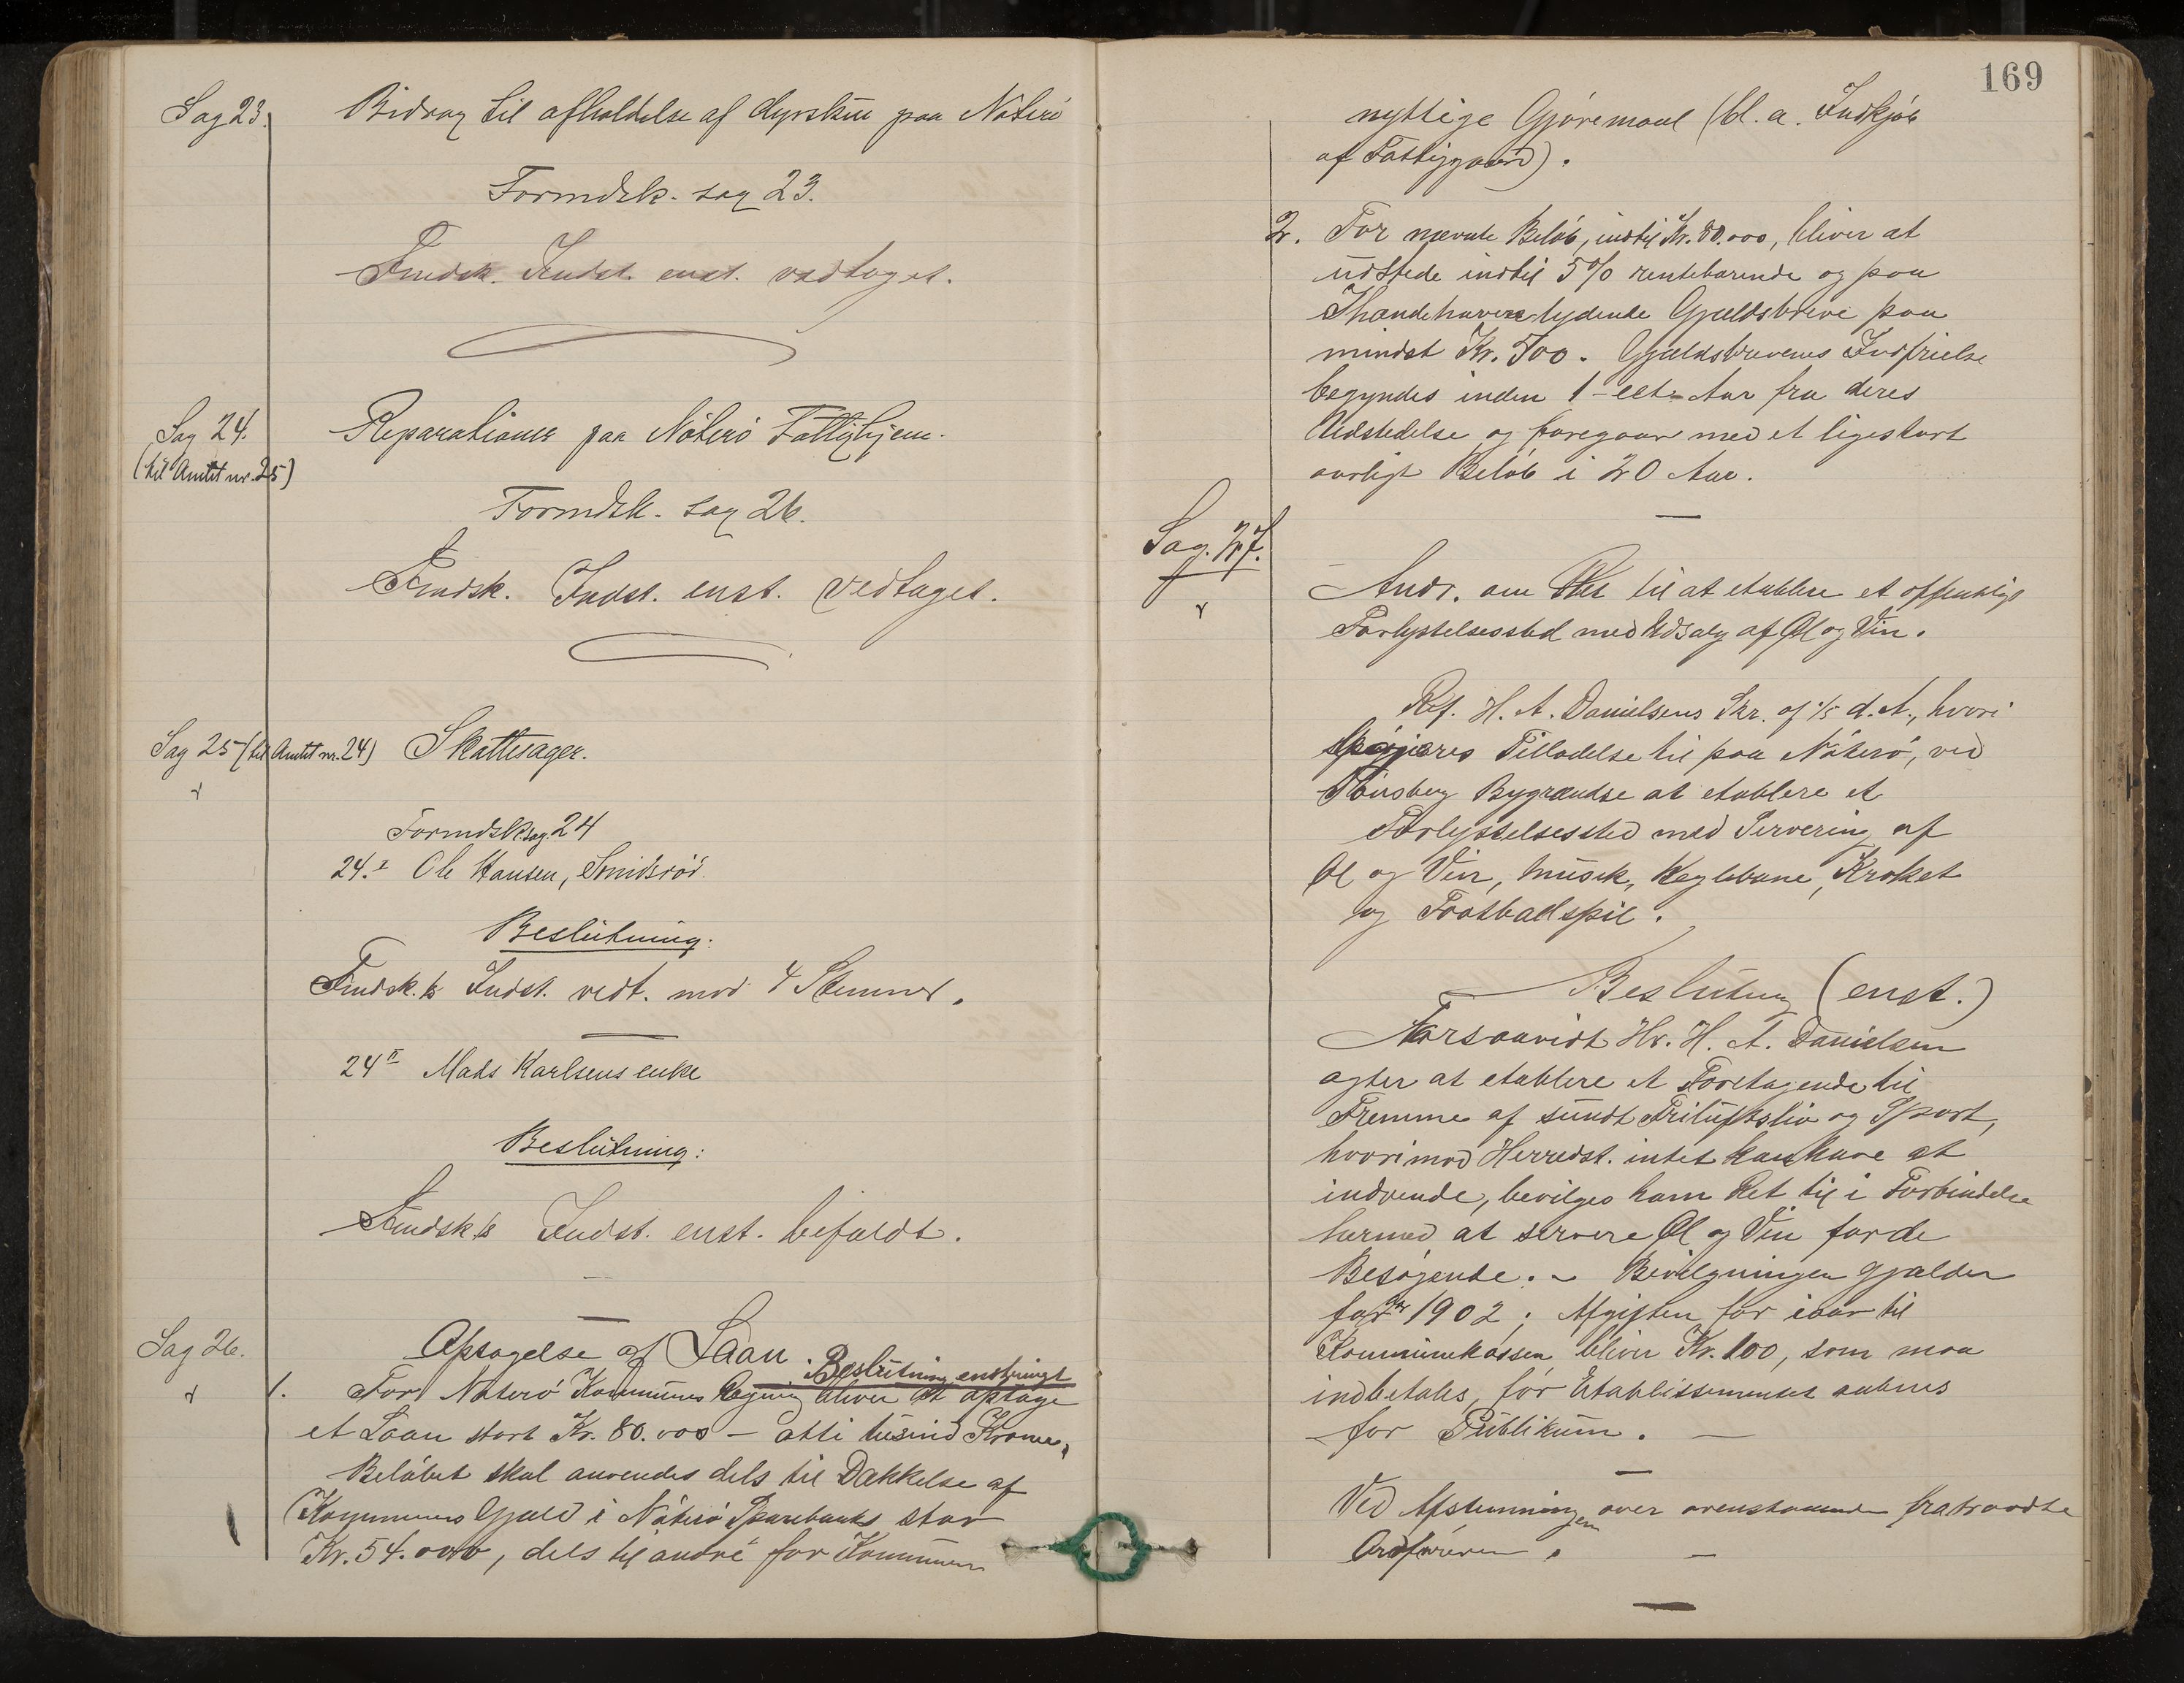 Sag 23. Bidrag til afholdelse af dyrskue paa Nøterø
Formdsk. sag 23.
Fmdsk. Indst. enst. vedtaget.
Sag 24. Reparationer paa Nøterø Fattighjem.
(til Amtet nr. 25)
Formdsk. sag 26.
Fmdsk. Indst. enst. vedtaget.
Sag 25 (til Amtet nr. 24) Skattesager.
Formdsk. sag. 24
24.I Ole Hansen, Smidsrød.
Beslutning:
Fmdsk.'s Indst. vedt. mod 4 Stemmer.
24 II Mads Karlsens enke
Beslutning:
Fmdsk.'s Indst. enst. bifaldt.
Sag 26. Optagelse af Laan. Beslutning enstemmigt
1. For Nøterø Kommunes Regning bliver at optage
et Laan stort Kr. 80.000 – otti tusind Kroner.
Beløbet skal anvendes dels til Dækkelse af
Kommunens Gjæld i Nøterø Sparebank stor
Kr. 54.000, dels til andre for Kommunen
169
nyttige Gjøremaal (bl. a. Indkjøb
af Fattiggaard).
2. For nævnte Beløb, indtil Kr. 80.000, bliver at
udstede indtil 5% rentebærende og paa
Ihændehaveren lydende Gjældsbreve paa
mindst Kr. 500. Gjældsbrevenes Indfrielse
begyndes inden 1 - ett - Aar fra deres
Udstedelse og foregaar med et ligestort
aarligt Beløb i 20 Aar.
Sag. 27.
Andr. om Ret til at etablere et offentligt
Forlystelsessted med Udsalg af Øl og Vin.
Ref. H. A. Danielsens Skr. af 1/5 d. A., hvori
begjæres Tilladelse til paa Nøterø, ved
Tønsberg Bygrændse at etablere et
Forlystelsessted med Servering af
Øl og Vin, Musik, Keglebane, Kroket
og Footballspil.
Beslutning (enst.)
Forsaavidt Hr. H. A. Danielsen
agter at etablere et Foretagende til
Fremme af sundt Friluftsliv og Sport,
hvorimod Herredst. intet kan have at
indvende, bevilges ham Ret til i Forbindelse
hermed at servere Øl og Vin for de
Besøgende. – Bevilgningen gjælder
for 1902; Afgiften for iaar til
Kommunekassen bliver Kr. 100, som maa
indbetales, før Etablissementet aabnes
for Publikum. –
Ved Afstemningen over ovenstaaende fratraadte
Ordføreren. –